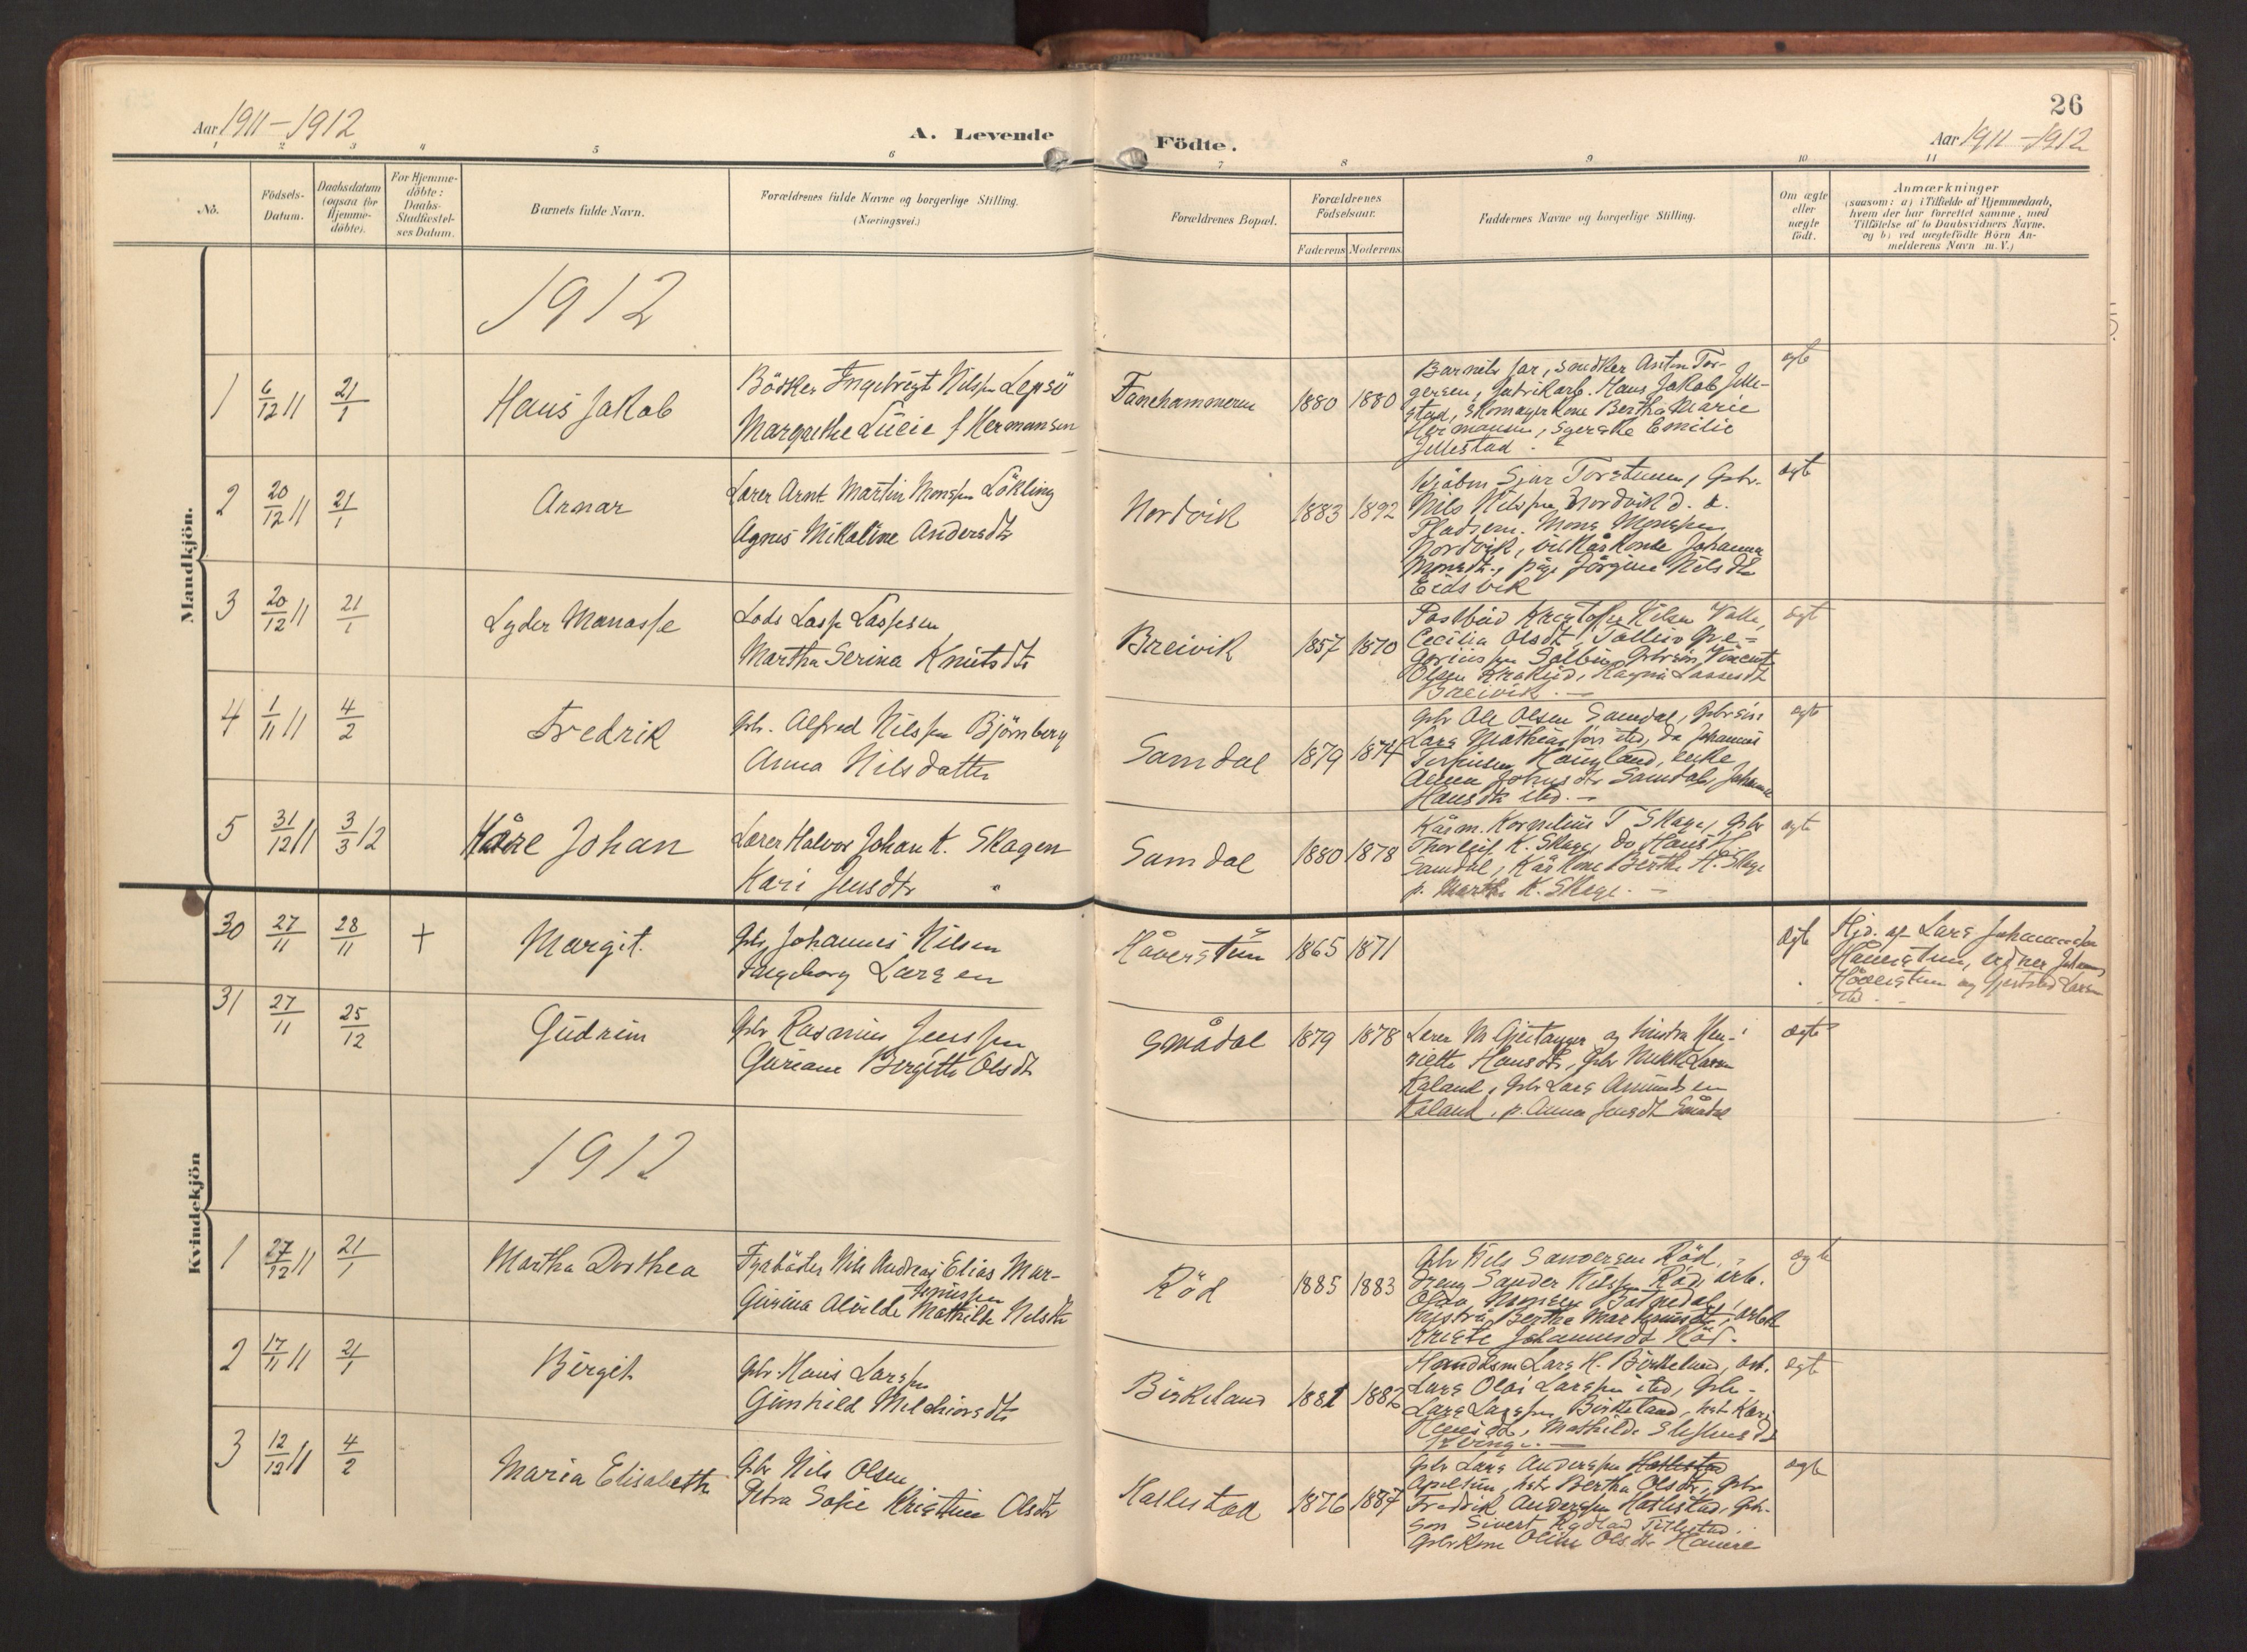 26
Aar 1911-1912
A. Levende
Födte.
Aar 1911-1912
1 2 3 4 5 6 7 8 9 10 11
No.
Födsels-
Datum.
Daabsdatum
(ogsaa for
Hjemme-
döbte).
For Hjemme-
döbte:
Daabs-
Stadfæstel-
ses Datum.
Barnets fulde Navn.
Forældrenes fulde Navne og borgerlige Stilling.
(Næringsvei.)
Forældrenes Bopæl.
Forældrenes
Födselsaar.
Faderens Moderens
Faddernes Navne og borgerlige Stilling.
Om ægte
eller
uægte
födt.
Anmærkninger
(saasom: a) i Tilfælde af Hjemmedaab,
hvem der har forrettet samme, med
Tilföielse af to Daabsvidners Navne.
og b) ved uægtefödte Börn An-
melderens Navn m. V.)
Mandkjön.
1912
1 6/12 11 21/1 Hans Jakob
Bödker Ingebrigt Nilsen Lepsö
Margrethe Lucie f Hermansen
Fanehammeren 1880 1880
Barnets far, snedker Anton Tor-
gersen, fabrikarb. Hans Jakob Jelle-
stad, skomagerkone Bertha Marie
Hermansen, syerske Emilie
Jellestad.
ægte
2 20/12 11 21/1 Arnar
Lærer Arnt Martin Monsen Lökling
Agnes Nikoline Andersdtr
Nordvik 1883 1892
Kjöbm Sjur Torstensen, Gbr.
Nils Nilssen Nordvik d. æ.
Pladsem. Mons Monssen
Nordvik, vilkårskone Johanna
Monsdtr, pige Jörgine Nilsdtr
Eidsvik
ægte
3 20/12 11 21/1 Lyder Manasse
Lods Lasse Lassesen
Martha Serina Knutsdtr
Breivik 1857 1870
Postbud Kristoffer Nilsen Valle,
Cecilia Olsdt, Tollius Gre-
goriussen, Gbrsön Vincent
Olsen, Ragna Lassesdt
Breivik.
ægt
4 1/11 11 4/2 Fredrik
Gbr. Alfred Nilssen Björnberg
Anna Nilsdatter
Samdal 1879 1874
Gbr Ole Olsen Samdal, Gbrsön
Lars Mathiassön sted, do Johannes
Haugland, enke
Anna Johnsdtr Samdal, Johanna
Hansdtr sted.
ægt
5 31/12 11 3/3 12 Kåre Johan
Lærer Halvor Johan K. Skagen
Kari Jensdtr
Samdal 1880 1878
Kårm. Kornelius T Skage, Gbr
Thorleif K. Skage, do Hans H.
Samdal, Kårkone Berthe H. Skage
p. Martha K. Skage.
ægte
Kvindekjön
30 27/11 28/11 + Margit.
Gbr Johannes Nilsen
Ingeborg Larsen
Håverstun 1865 1871
ægte
Hjd. af Lars Johannessen
Håverstun, vidner Johannes
Håverstun og Larsen
sted
31 27/11 25/12 Gudrun
Gbr Rasmus Jenssen
Guriane Birgitte Olsdtr
Smådal 1879 1878
Lærer M Gjeitanger og hustru Hen-
riette Hansdtr, Gbr Larsen
Kaland, Gbr Lars Amundsen
Kaland, p. Anna Jensdt Smådal
ægte
1912
1 27/12 11 21/1 Martha Dorthea
Fyrböter Nils Andreas Elias Mar-
kussen
Gurina Alvilde Mathilde Nilsdtr
Röd 1885 1883
Gbr Nils Sandersen Röd,
dreng Sander Nilssen Röd, arb.
Olda Monsen
hustru Bertha Markusdtr, arbk
Kriste Johannesdt Röd.
ægte
2 17/11 11 21/1 Birgit
Gbr. Hans Larssen
Gunhild Melchiorsdtr
Birkeland 1881 1882
Handelsm Lars H. Birkeland, arb.
Lars Olai Larssen sted, Gbr.
Lars Larssen Birkeland, hst Kari
Hansdt, Mathilde
ægte
3 12/12 11 4/2 Maria Elisabeth
Gbr Nils Olsen
Petra Sofie Kristine Olsdtr
Hatlestad 1876 1887
Gbr Lars Anderssen Hatlestad
Apeltun, hstr Bertha Olsdtr, Gbr
Fredrik Anderssen Hatlestad, Gbr-
sön Sivert Rydland Titlestad.
Gbrkone Oline Olsdtr Haukre
ægte